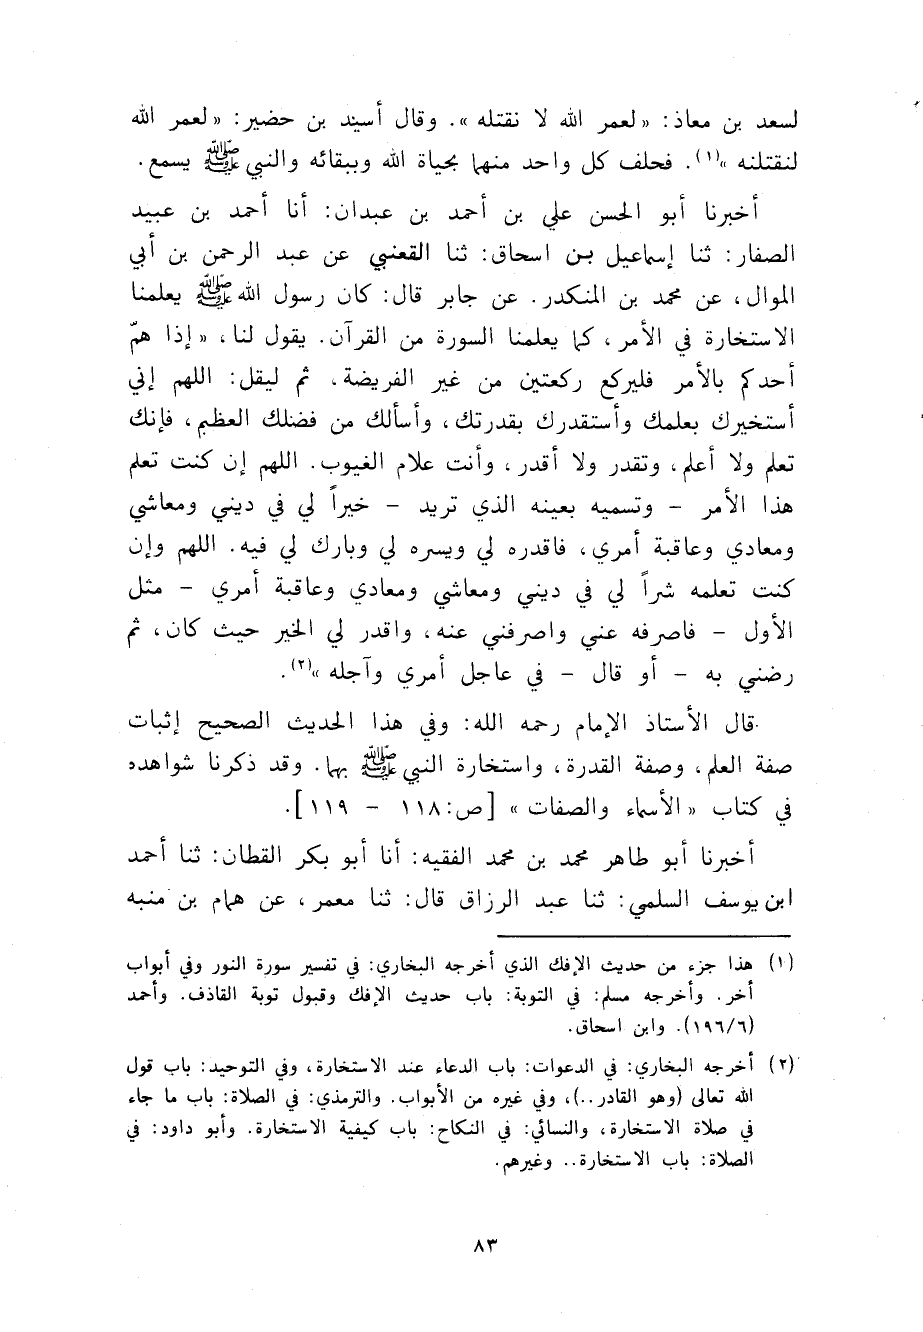 لسعد بن معاذ: « لعمر الله لا نقتله ». وقال أسيد بن حضير: « لعمر الله
لنقتلنه »(١). فحلف كل واحد منهما بحياة الله وببقائه والنبي ﷺ يسمع.
أخبرنا أبو الحسن علي بن أحمد بن عبدان: أنا أحمد بن عبيد
الصفار: ثنا إسماعيل بن اسحاق: ثنا القعنبي عن عبد الرحمن بن أبي
الموال، عن محمد بن المنكدر. عن جابر قال: كان رسول الله ﷺ يعلمنا
الاستخارة في الأمر، كما يعلمنا السورة من القرآن. يقول لنا، « إذا همّ
أحدكم بالأمر فليركع ركعتين من غير الفريضة. ثم ليقل: اللهم إني
أستخيرك بعلمك وأستقدرك بقدرتك، وأسألك من فضلك العظيم، فإنك
تعلم ولا أعلم، وتقدر ولا أقدر، وأنت علام الغيوب. اللهم إن كنت تعلم
هذا الأمر - وتسميه بعينه الذي تريد - خيراً لي في ديني ومعاشي
ومعادي وعاقبة أمري، فاقدره لي ويسره لي وبارك لي فيه. اللهم وإن
كنت تعلمه شراً لي في ديني ومعاشي ومعادي وعاقبة أمري - مثل
الأول - فاصرفه عني واصرفني عنه، واقدر لي الخير حيث كان، ثم
رضني به - أو قال - في عاجل أمري وآجله »(٢).
قال الأستاذ الإمام رحمه الله: وفي هذا الحديث الصحيح إثبات
صفة العلم، وصفة القدرة، واستخارة النبي ﷺ بها. وقد ذكرنا شواهده
في كتاب « الأسماء والصفات » [ص: ١١٨ - ١١٩].
أخبرنا أبو طاهر محمد بن محمد الفقيه: أنا أبو بكر القطان: ثنا أحمد
ابن يوسف السلمي: ثنا عبد الرزاق قال: ثنا معمر، عن همام بن منبه
(١) هذا جزء من حديث الإفك الذي أخرجه البخاري: في تفسير سورة النور وفي أبواب
أخر. وأخرجه مسلم: في التوبة: باب حديث الإفك وقبول توبة القاذف. وأحمد
(١٩٦/٦). وابن اسحاق.
(٢) أخرجه البخاري: في الدعوات: باب الدعاء عند الاستخارة، وفي التوحيد: باب قول
الله تعالى (وهو القادر..)، وفي غيره من الأبواب. والترمذي: في الصلاة: باب ما جاء
في صلاة الاستخارة، والنسائي: في النكاح: باب كيفية الاستخارة. وأبو داود: في
الصلاة: باب الاستخارة.. وغيرهم.
٨٣